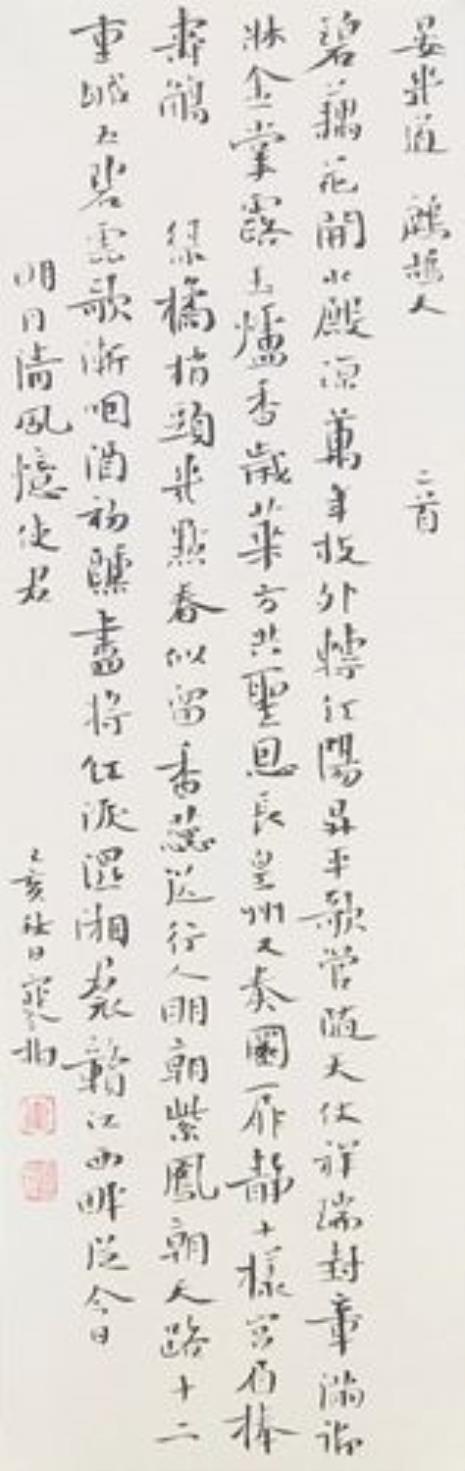 晏幾道 鷓鴣天 二首
碧藕花開水殿涼萬年枝外轉紅陽昇平歌管随天仗祥瑞封章滿御
牀金掌露玉爐香歲華方共聖恩長皇州又奏圜扉靜十樣宮眉捧
壽觴 绿橘梢頭幾點春似留香蕊送行人明朝紫鳳朝天路十二
重城五碧雲歌漸咽酒初醺盡将红淚濕湘裙贛江西畔從今日
明月清風憶使君
乙亥 日